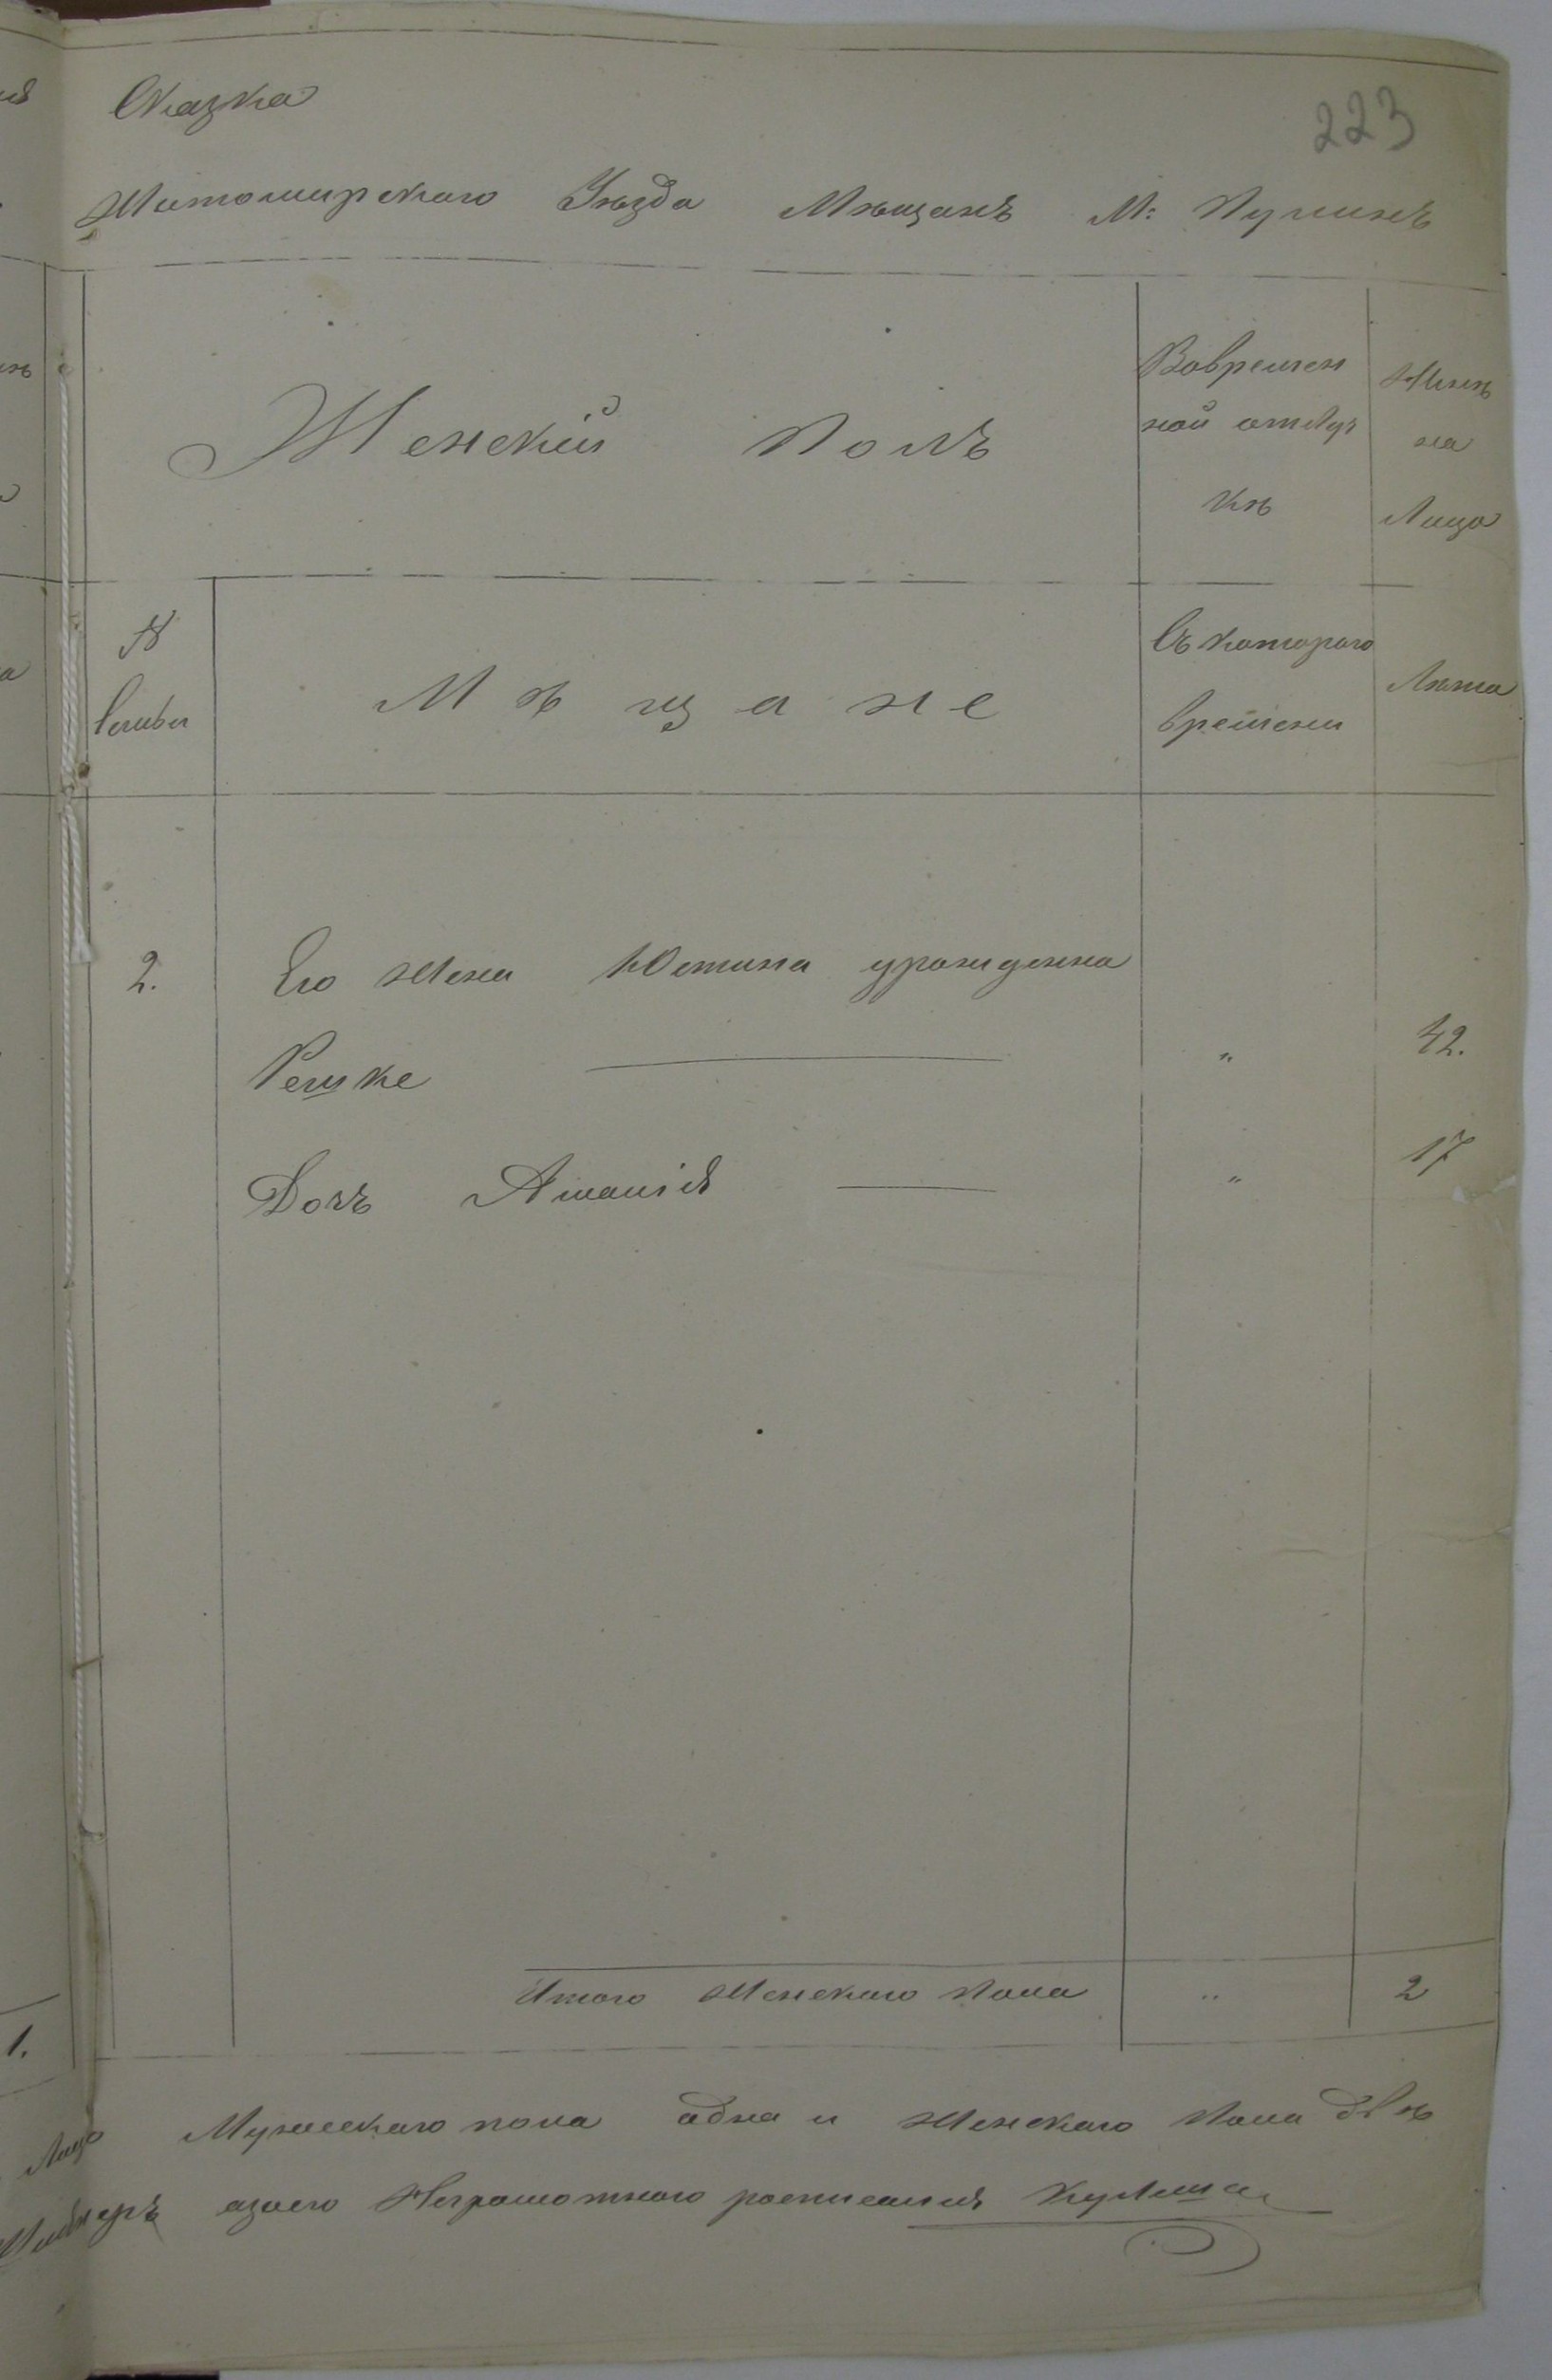 Сказка
223
Житомирскаго Уѣзда Мѣщанъ М: Пулинъ
Женскій Полъ
Вовремен
ной отлуч
кѣ
Нынѣ
на
Лицо
№
Семьи
Мѣщане
Съ котораго
времени
Лѣта
2. Его Жена Юстина урожденна
Решке — " 42.
Дочъ Амалія — " 17
Итого Женскаго Пола " 2
1.
Лицо Мужескаго пола одна и Женскаго Пола двѣ
азаего Неграмотнаго росписался